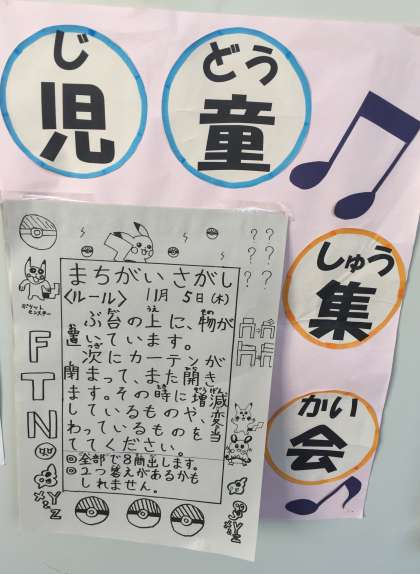 じ どう
児童
しゅう
集
かい
会
まちがいさがし
〈ルール〉 11月 5日(木)
ぶ台の上に、物が
置いています。
次にカーテンが
閉まって、また開き
ます。その時に増減
しているものや、変
わっているものを当
ててください。
◎全部で3問出します。
◎2つ答えがあるかも
しれません。
ポケット
モンスター
F
T
N
XYZ
XYZ